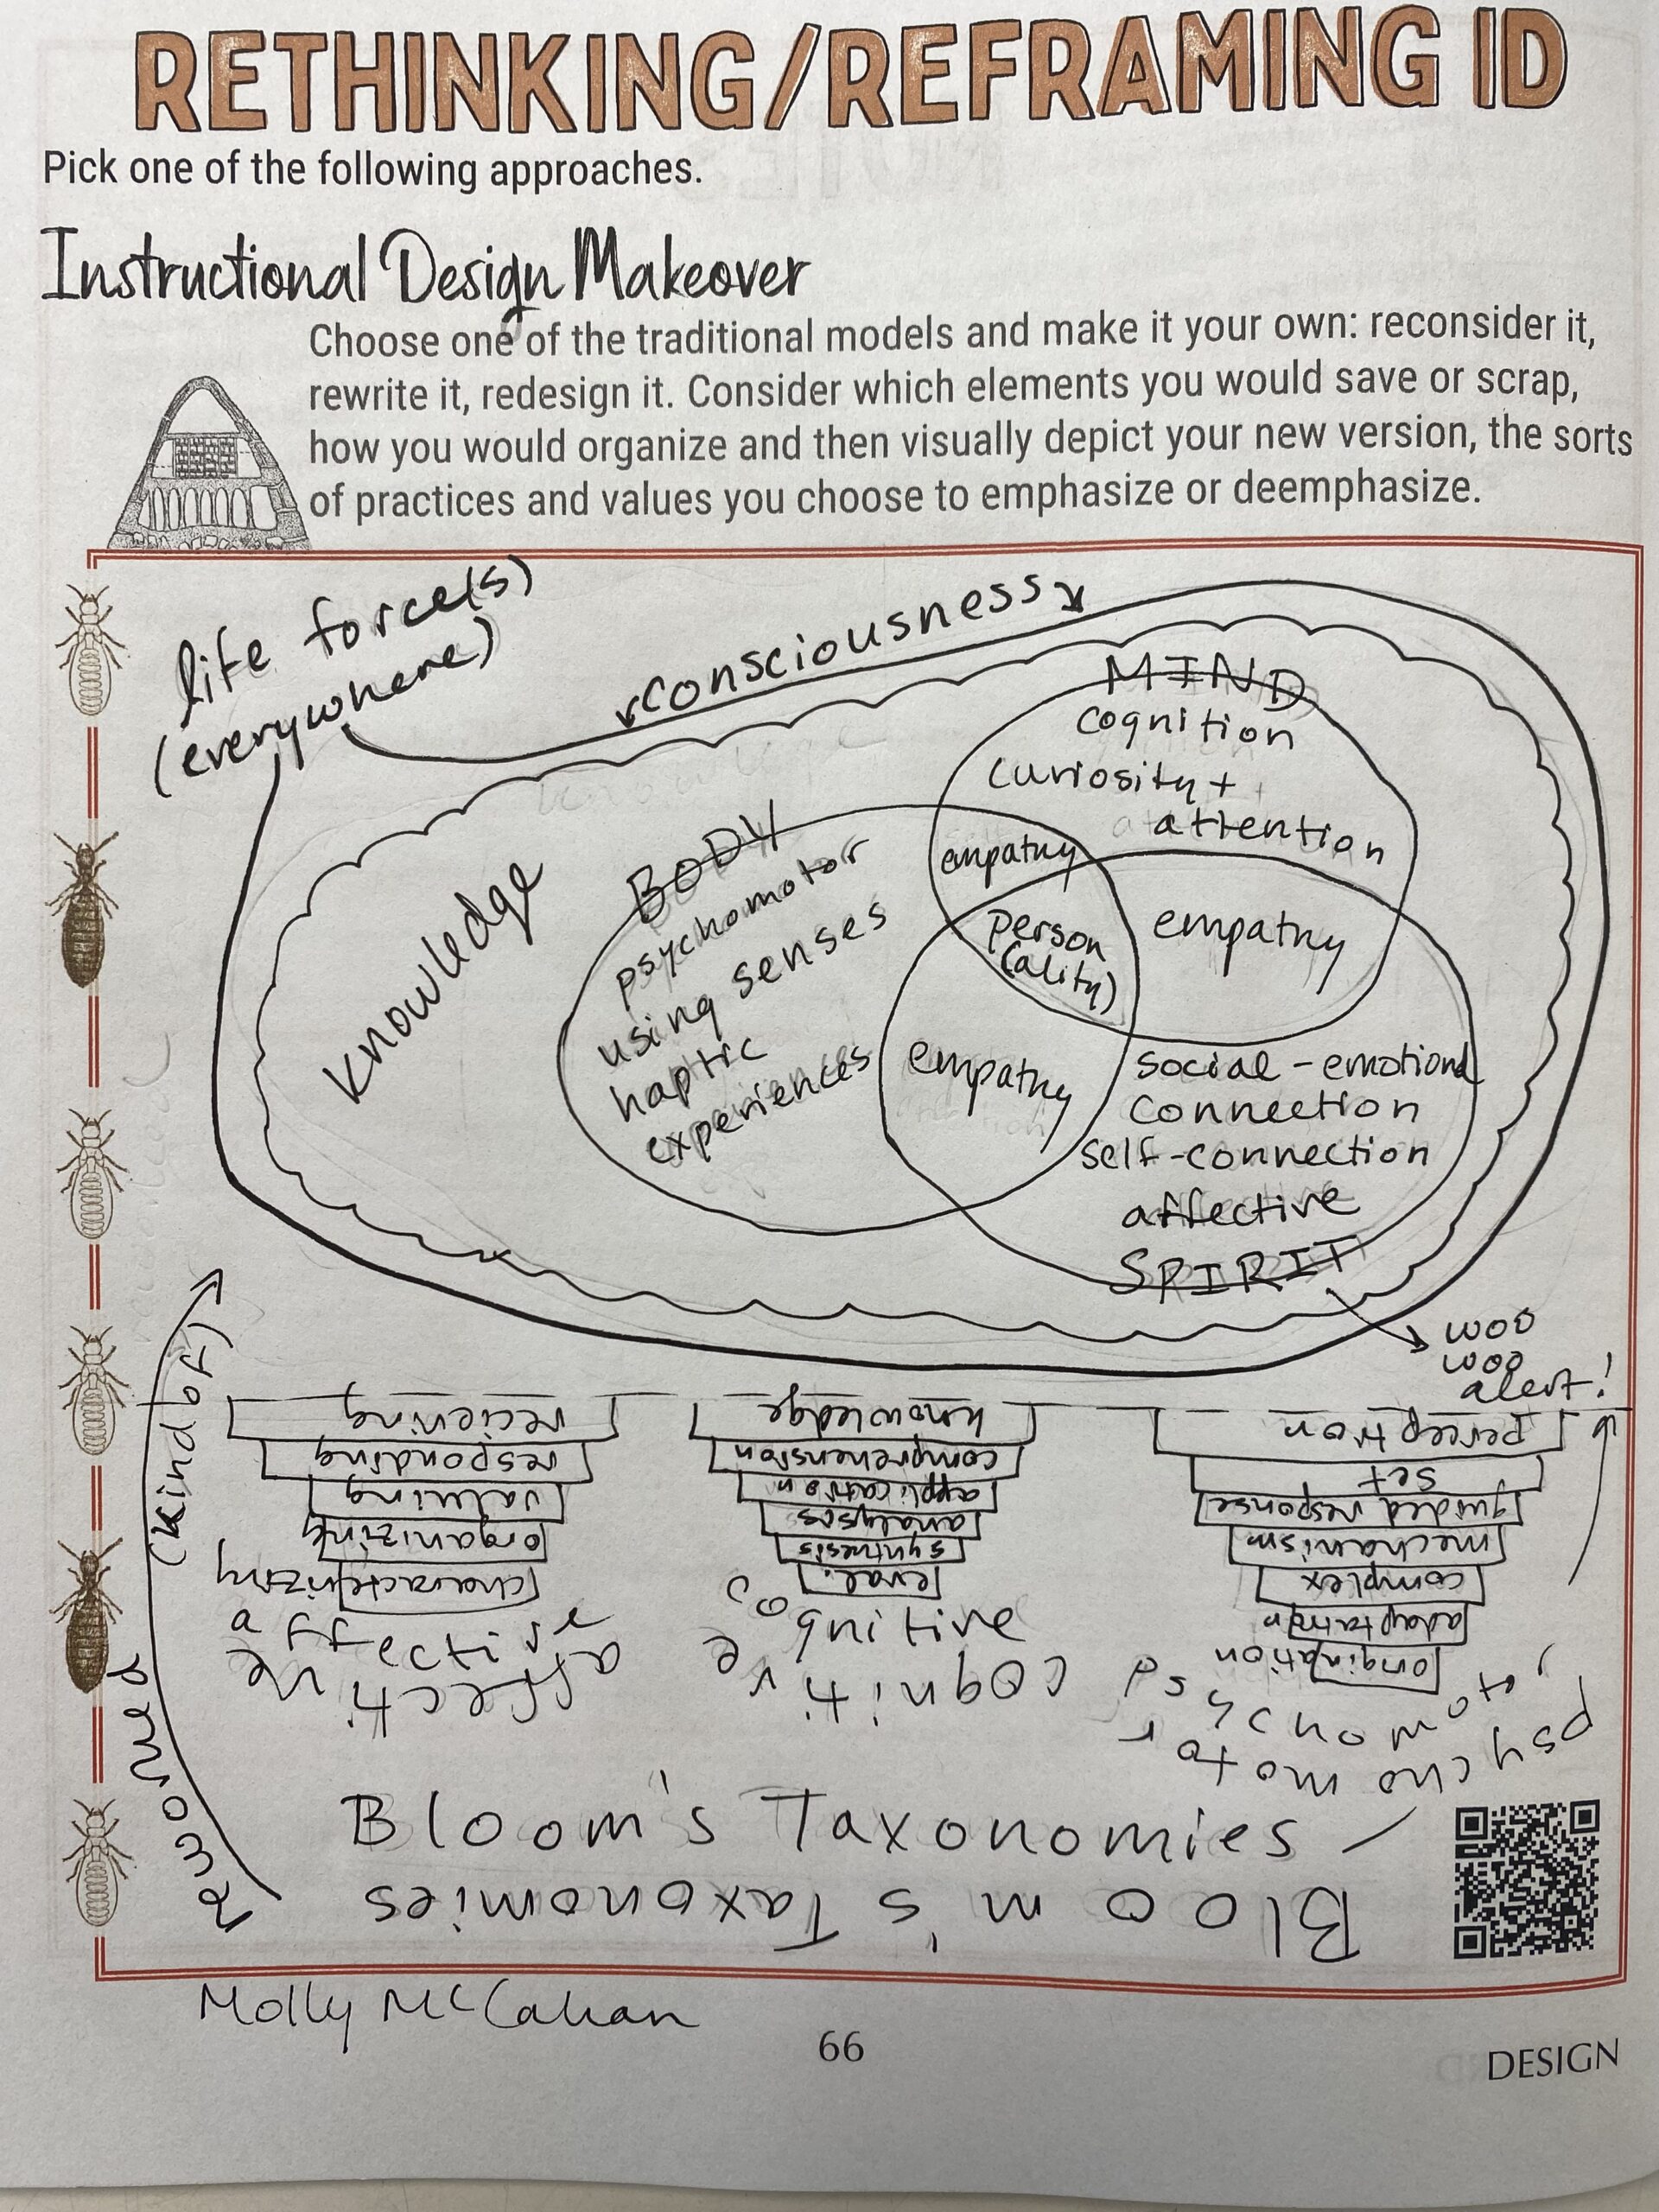 RETHINKING/REFRAMING ID
Pick one of the following approaches.
Instructional Design Makeover
Choose one of the traditional models and make it your own: reconsider it,
rewrite it, redesign it. Consider which elements you would save or scrap,
how you would organize and then visually depict your new version, the sorts
of practices and values you choose to emphasize or deemphasize.
life force(s)
(everywhere)
consciousness
knowledge
MIND
cognition
curiosity +
attention
BODY
psychomotor
using senses
haptic
experiences
empathy
person
(ality)
empathy
empathy
social-emotional
connection
self-connection
affective
SPIRIT
woo
woo
alert!
(kind of)
removed
recieving
responding
valuing
organizing
characterizing
affective
affective
knowledge
comprehension
application
analysis
synthesis
eval.
cognitive
cognitive
perception
set
guided response
mechanism
complex
adaptation
origination
psychomotor
Bloom's Taxonomies
Bloom's Taxonomies
Molly McCahan
66
DESIGN